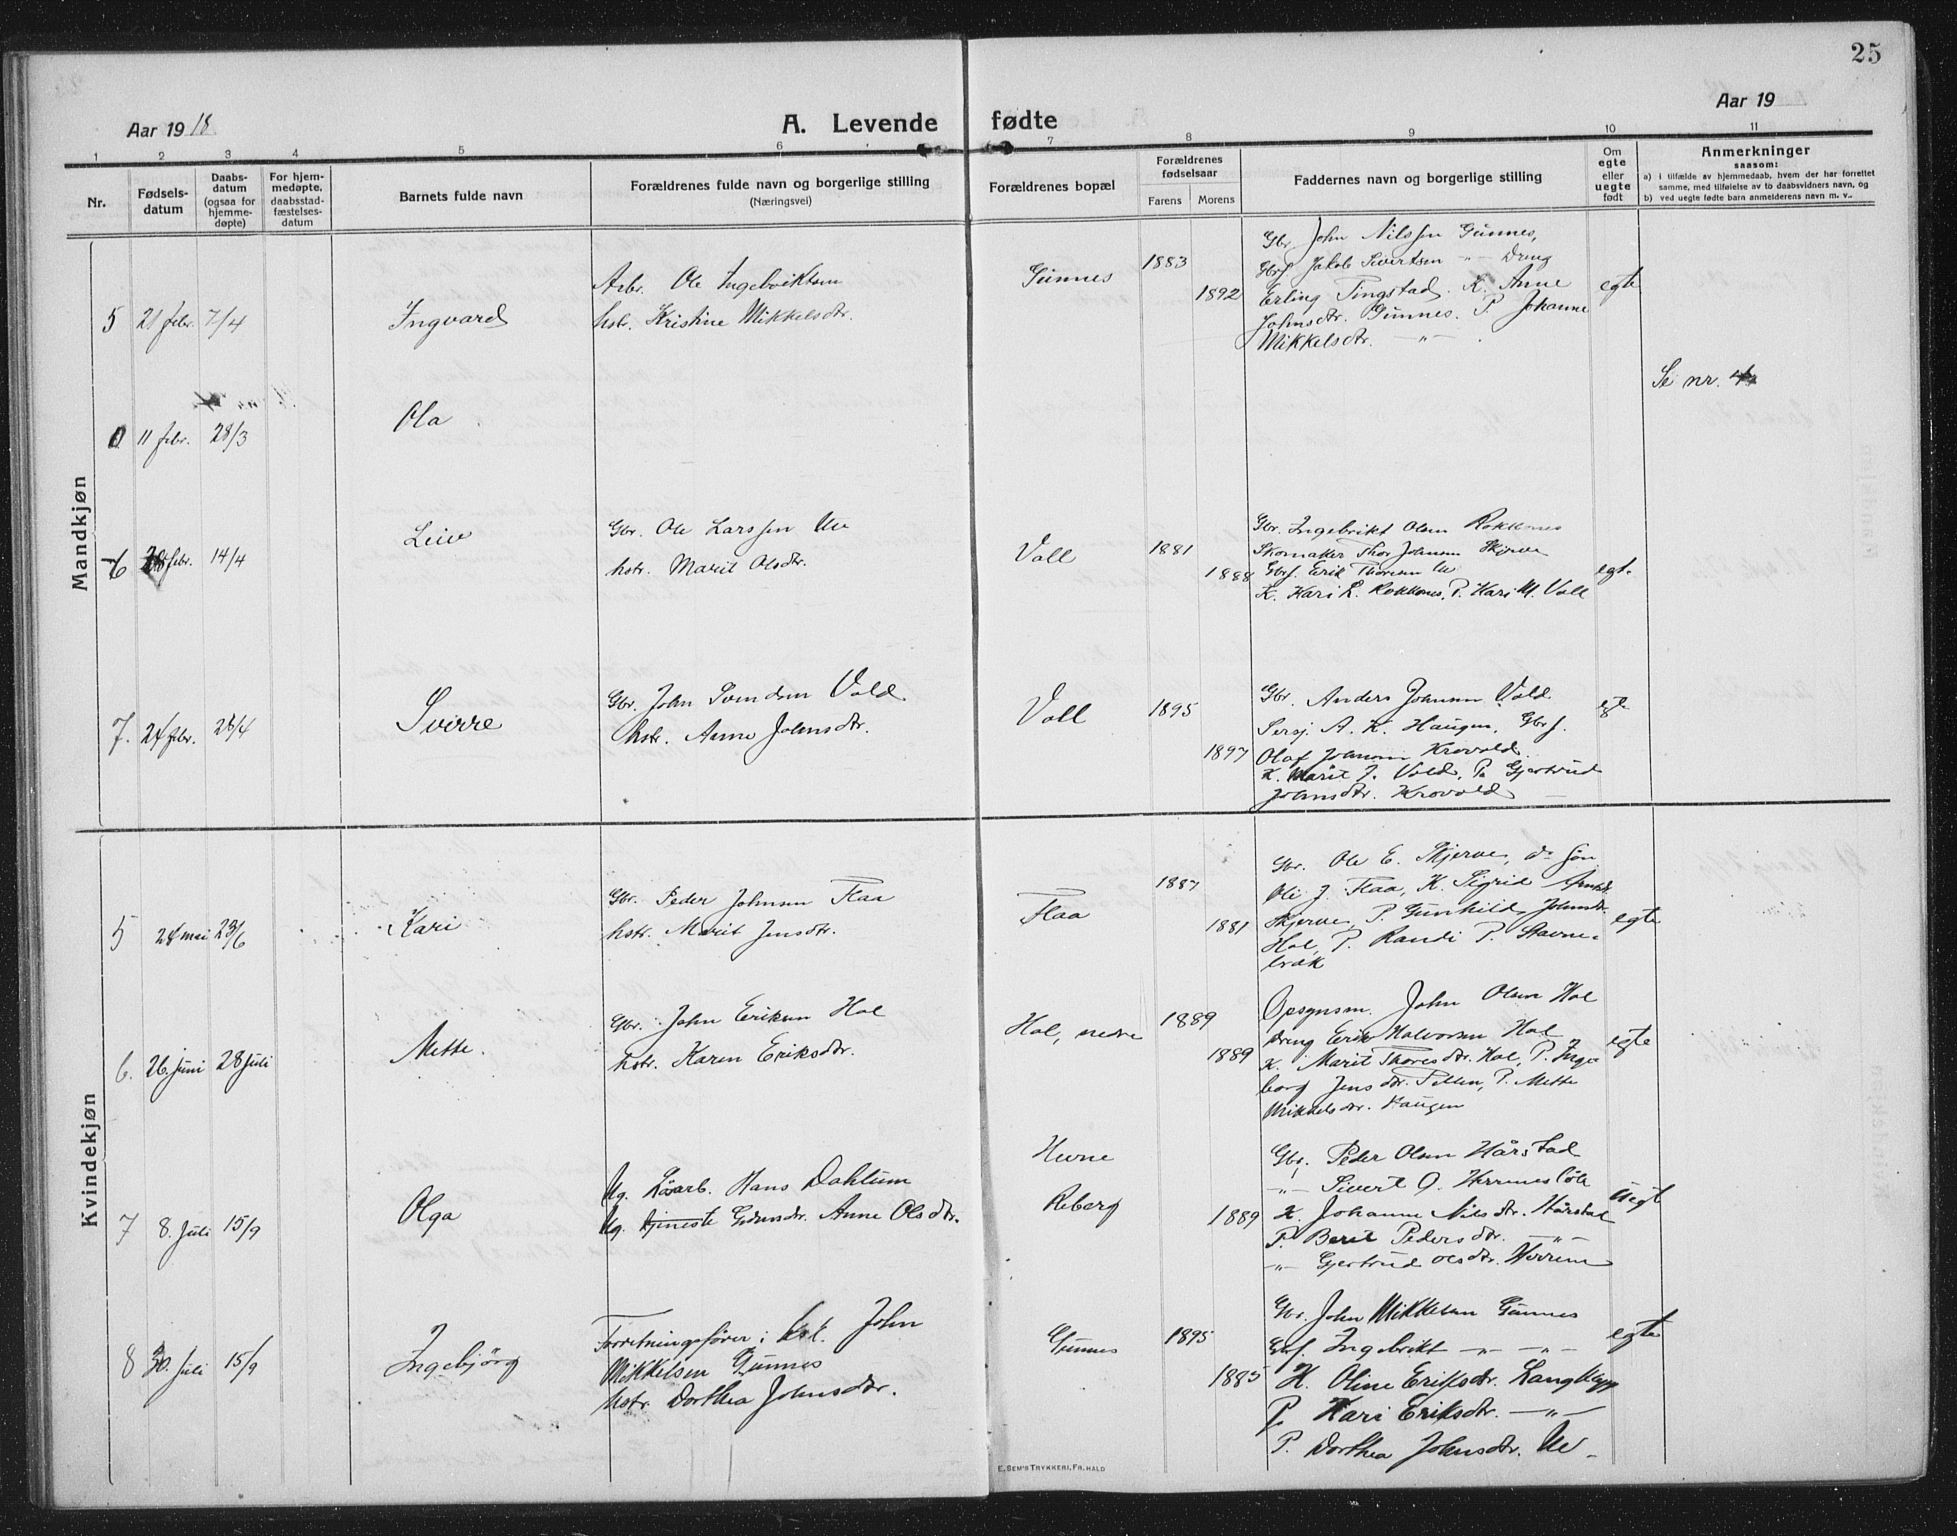 25
Aar 1918
A. Levende fødte
Aar 19
1 2 3 4 5 6 7 8 9 10 11
Nr.
Fødsels-
datum
Daabs-
datum
(ogsaa for
hjemme-
døpte)
For hjem-
medøpte,
daabsstad-
fæstelses-
datum
Barnets fulde navn
Forældrenes fulde navn og borgerlige stilling
(Næringsvei)
Forældrenes bopæl
Forældrenes
fødselsaar
Farens Morens
Faddernes navn og borgerlige stilling
Om
egte
eller
uegte
født
Anmerkninger
saasom:
a) i tilfælde av hjemmedaab, hvem der har forrettet
samme, med tilføielse av to daabsvidners navn, og
b) ved uegte fødte barn anmelderens navn m. v..
Mandkjøn
5 21 febr. 7/4
Ingvard
Arbr. Ole Ingebriktsen
hstr. Kristine Mikkelsdtr.
Gunnes
1883
1892
Gbr. John Nilssen Gunnes,
Gbrs. Jakob Sivertsen -"- Dreng
Erling Tingstad. K. Anne
Johnsdtr. Gunnes. P. Johanne
Mikkelsdtr. -"-
egte
11 febr. 28/3
Ola
Se nr. 4
6 febr. 14/4
Leiv
Gbr. Ole Larssen Ue
hstr. Marit Olsdtr.
Voll
1881
1888
Gbr. Ingebrikt Olsen Rokkones
Skomaker Thor Johnsen Skjerve
Gbrs. Erik Thoresen Ue
K. Kari L. Rokkones, P. Kari M. Voll
egte
7. 24 febr. 26/4
Sverre
Gbr. John Svendsen Vold
hstr. Anne Johnsdtr.
Voll
1895
1897
Gbr. Anders Johnsen Vold
Sersj. A. K. Haugen, Gbrs.
Olaf Johnsen Krovold
K. Marit J. Vold, P. Gjertrud
Johnsdtr. Krovold
egte
Kvindekjøn
5 28 mai 23/6
Kari
Gbr. Peder Johnsen Flaa
hstr. Marit Jensdtr.
Flaa
1887
1881
Gbr. Ole E. Skjerve, ds søn
Ole J. Flaa, K. Sigrid
Skjerve, P. Gunhild Johnsdtr.
Hol, P. Randi P. Stavne-
brak
egte
6. 26. juni 28 juli
Mette.
Gbr. John Eriksen Hol
hstr. Karen Eriksdtr.
Hol, nedre
1889
1889
Opsynsm. John Olsen Hol
Dreng Erik Halvorsen Hol
K. Marit Thoresdtr. Hol, P. Inge
borg Jensdtr. P. Mette
Mikkelsdtr. Haugen
egte
7 8. Juli 15/9
Olga
Ug. Løsarb. Hans Dahlum
Ug. tjeneste Grdmdtr. Anne Olsdtr.
Hevne
Reberg
1889
Gbr. Peder Olsen Hårstad
-"- Sivert O.
K. Johanne Nilsdtr. Hårstad
P. Berit Pedersdtr. -"-
-"- Gjertrud Olsdtr. Herrem
uegte
8 30. Juli 15/9
Ingebjörg
Forretningsfører i John
Mikkelsen Gunnes
hstr. Dorthea Johnsdtr.
Gunnes
1895
1885
Gbr. John Mikkelsen Gunnes
Gbrs. Ingebrikt -"- -"-
K. Oline Eriksdtr. Langklopp
P. Kari Eriksdtr. -"-
P. Dorthea Johnsdtr. Ue
egte
E. SEM'S TRYKKERI, FR.HALD